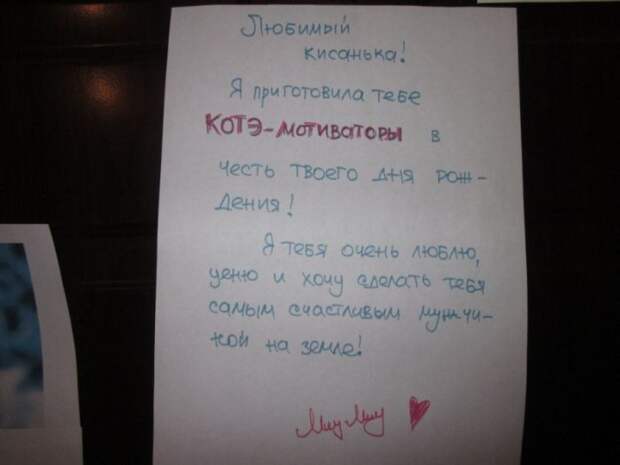 Любимый
кисанька!
Я приготовила тебе
КОТЭ-мотиваторы в
честь твоего дня рож-
дения!
Я тебя очень люблю,
ценю и хочу сделать тебя
самым счастливым мужчи-
ной на земле!
Мяу Мяу